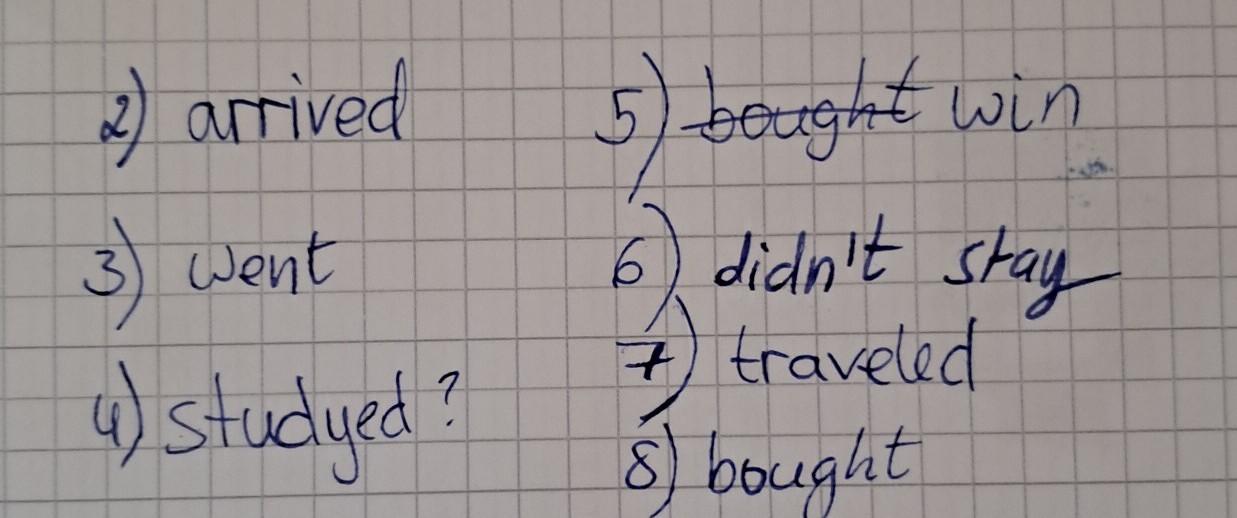 2) arrived
3) went
4) studyed?
5) bought win
6) didn't stay
7) traveled
8) bought